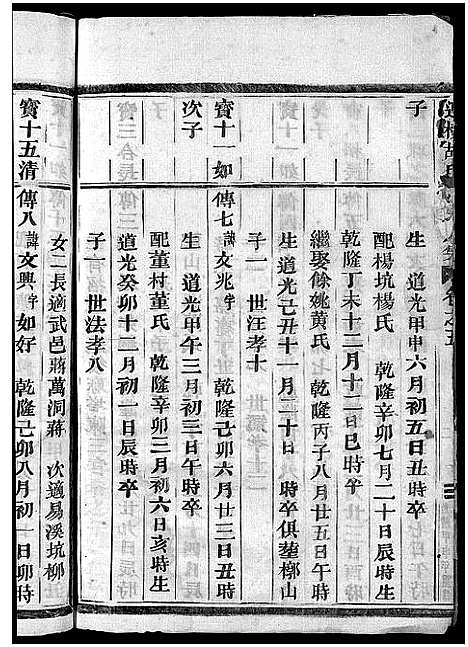 子
生 道光甲申六月初五日丑時卒
配楊坑楊氏 乾隆辛卯七月二十日辰時生
乾隆丁未十二月十二日巳時卒
繼娶餘姚黃氏 乾隆丙子八月廿五日午時
生 道光己丑十一月二十日 時卒俱塟㮯山
子一 世汪孝十
寶十一如 傳七 諱文兆 字 乾隆己卯六月廿三日丑時
次子 生 道光甲午三月初三日午時卒
配董村董氏 乾隆辛卯三月初六日亥時生
道光癸卯十二月初一日辰時卒
子一 世法孝八
女二長適武邑蔣萬洞蔣 次適易溪坑柳
寶十五清 傳八 諱文興 字如好 乾隆己卯八月初一日卯時